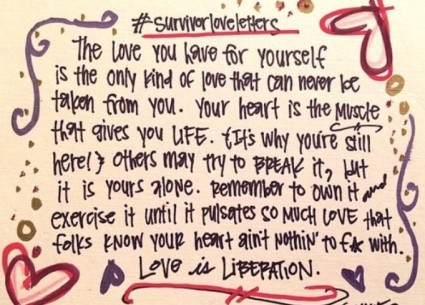 #survivorloveletters
The Love you have for yourself
is the only kind of love that can never be
taken from you. Your heart is the MUSCLE
that gives you LIFE. {It's why you're still
here!} Others may try to BREAK it, but
it is yours alone. Remember to own it and
exercise it until it pulsates SO MUCH LOVE that
folks know YOUR heart ain't nothin' to f★ with.
LOVE is LIBERATION.